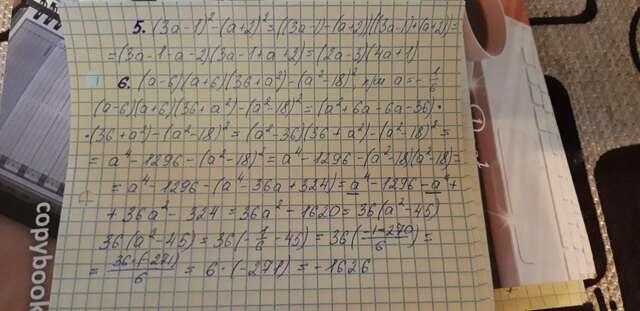 5. (3a-1)² - (a+2)² = ((3a-1)-(a+2))((3a-1)+(a+2)) =
= (3a-1-a-2)(3a-1+a+2) = (2a-3)(4a+1)
6. (a-6)(a+6)(36+a²)-(a²-18)², при a = -1/6
(a-6)(a+6)(36+a²)-(a²-18)² = (a²+6a-6a-36)·
·(36+a²)-(a²-18)² = (a²-36)(36+a²)-(a²-18)² =
= a⁴-1296-(a²-18)² = a⁴-1296-(a²-18)(a²-18) =
= a⁴-1296-(a⁴-36a+324) = a⁴-1296-a⁴+
+36a²-324 = 36a²-1620 = 36(a²-45)
36(a²-45) = 36(-1/6-45) = 36((-1-270)/6) =
= 36·(-271)/6 = 6·(-271) = -1626
copybook